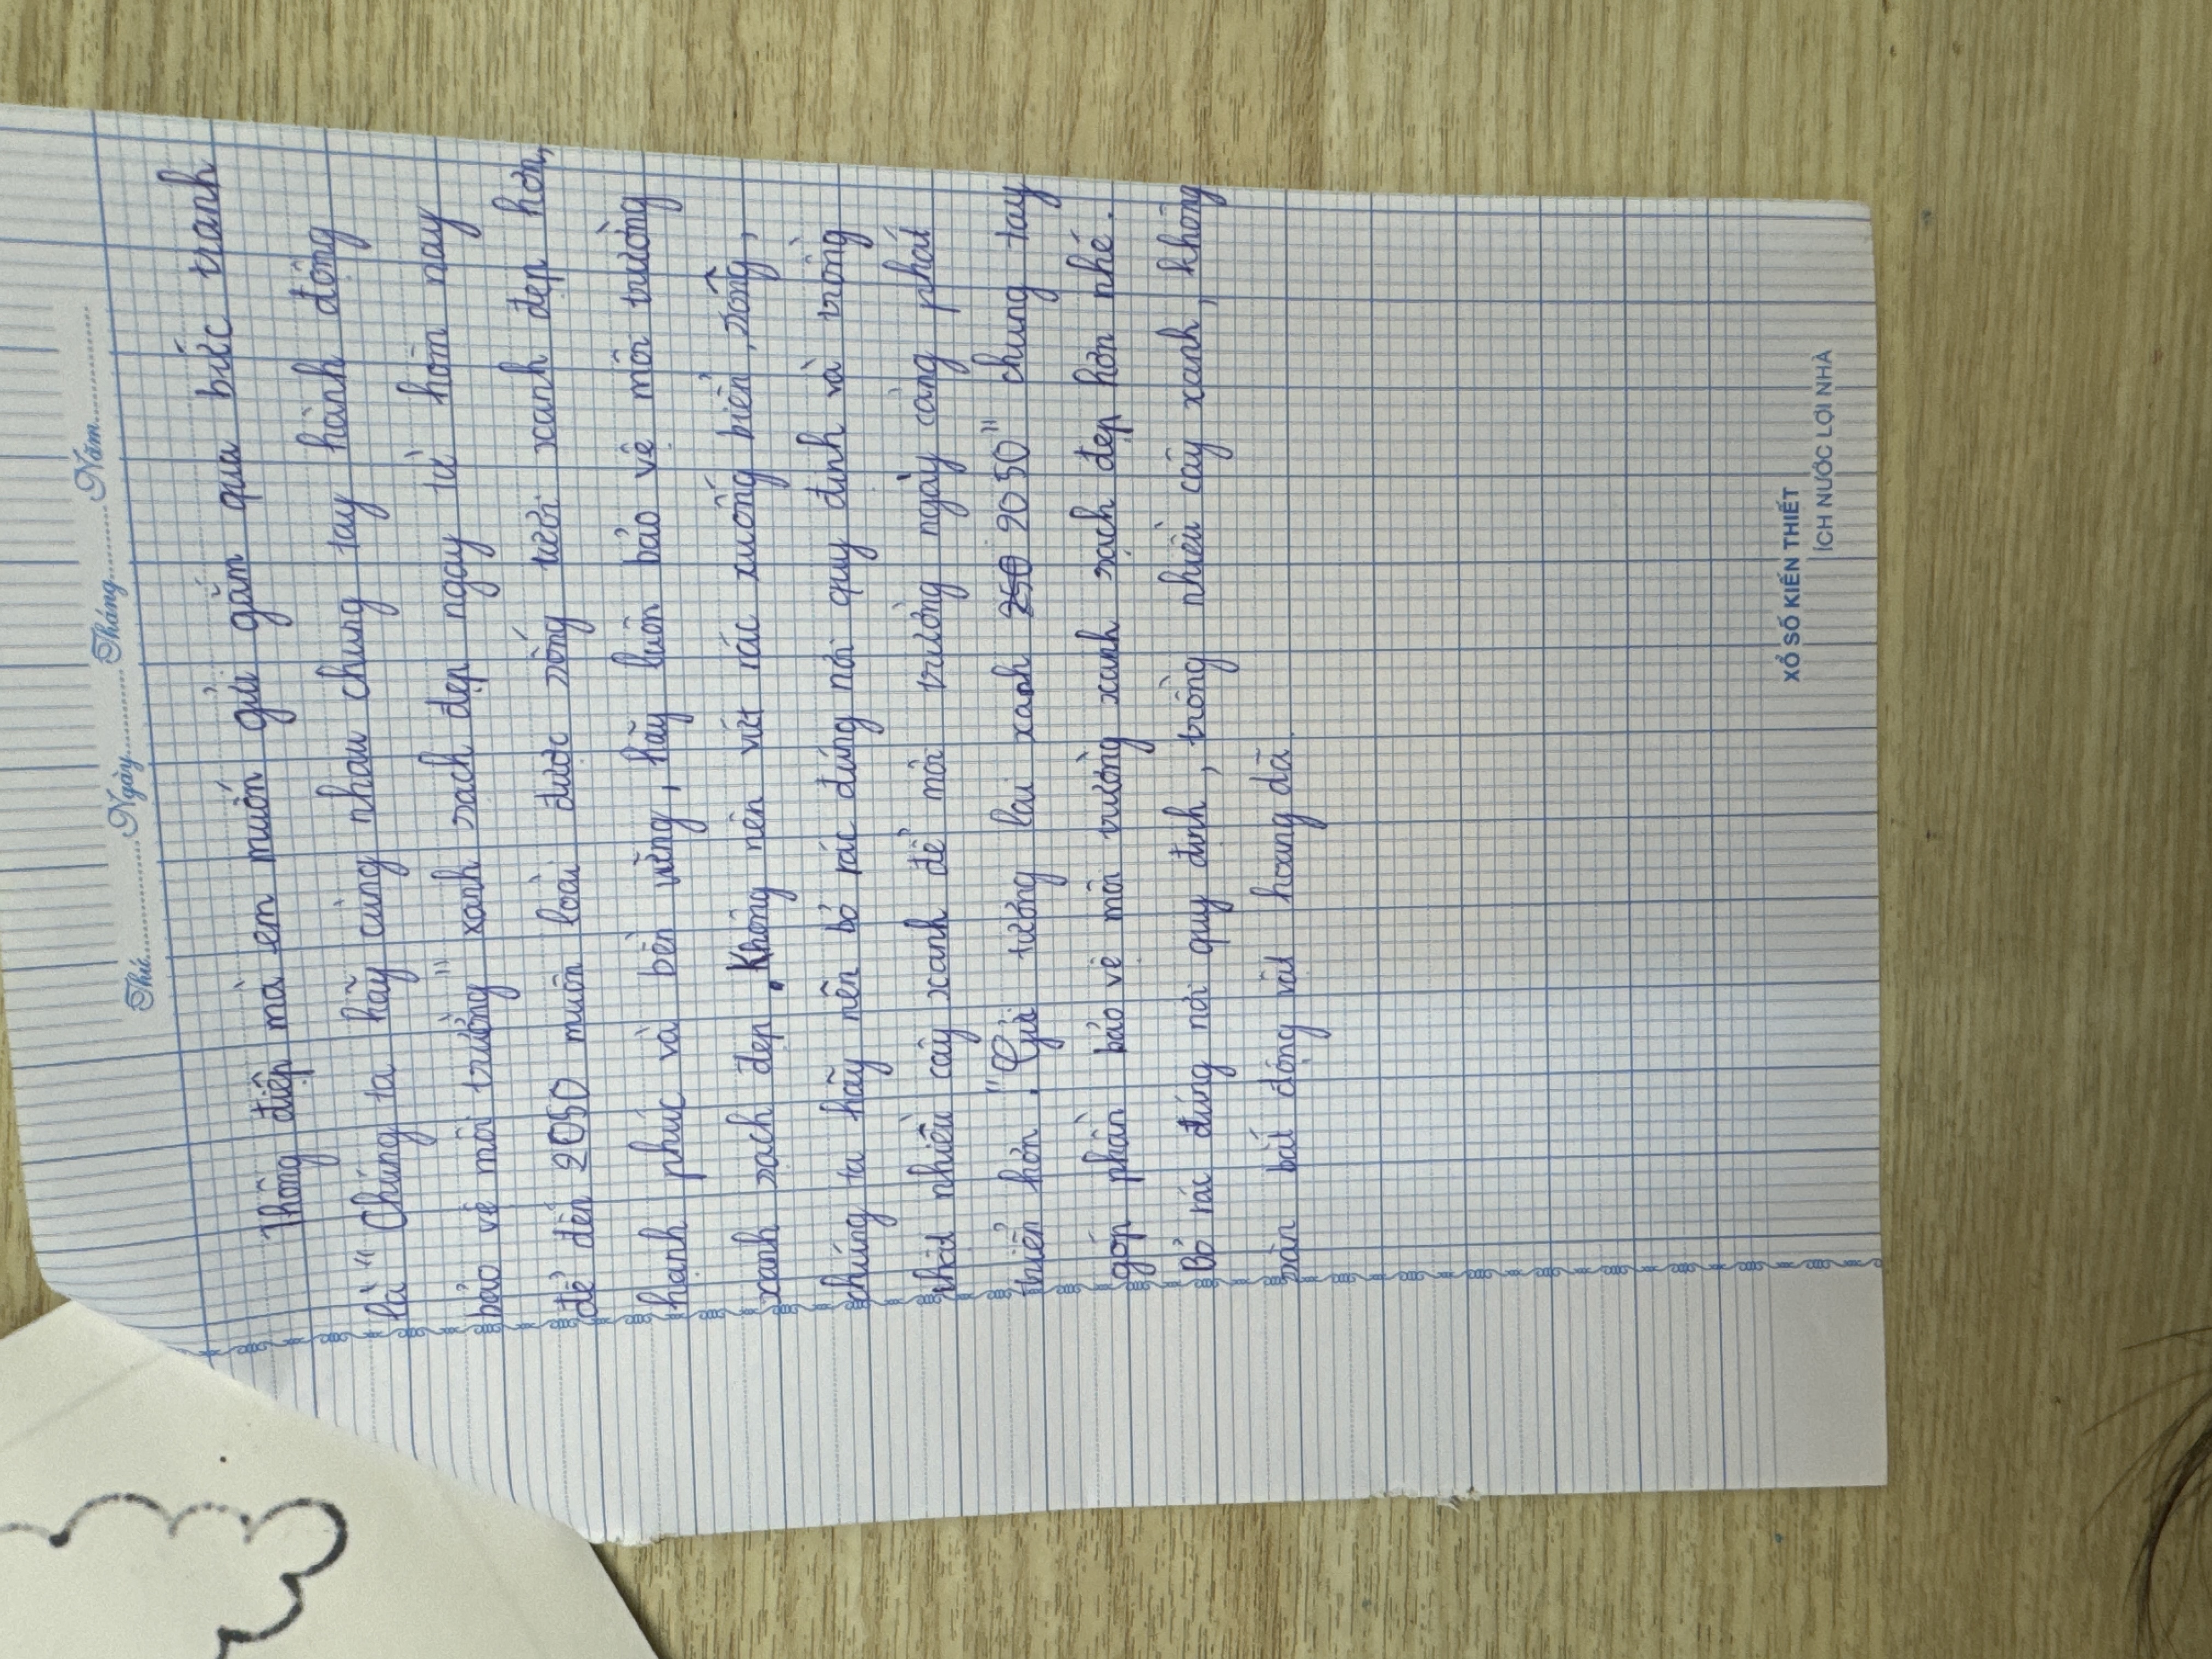 Thứ.......... Ngày.......... Tháng.......... Năm..........
Thông điệp mà em muốn gửi gắm qua bức tranh
là "Chúng ta hãy cùng nhau chung tay hành động
bảo vệ môi trường" xanh sạch đẹp ngay từ hôm nay
để đến 2050 muôn loài được sống tươi xanh đẹp hơn,
hạnh phúc và bền vững, hãy luôn bảo vệ môi trường
xanh sạch đẹp. Không nên vứt rác xuống biển, sông,
chúng ta hãy nên bỏ rác đúng nơi quy định và trồng
thật nhiều cây xanh để môi trường ngày càng phát
triển hơn. "Gửi tương lai xanh 250 2050" chung tay
góp phần bảo vệ môi trường xanh sạch đẹp hơn nhé.
Bỏ rác đúng nơi quy định, trồng nhiều cây xanh, không
săn bắt động vật hoang dã.
XỔ SỐ KIẾN THIẾT
ÍCH NƯỚC LỢI NHÀ